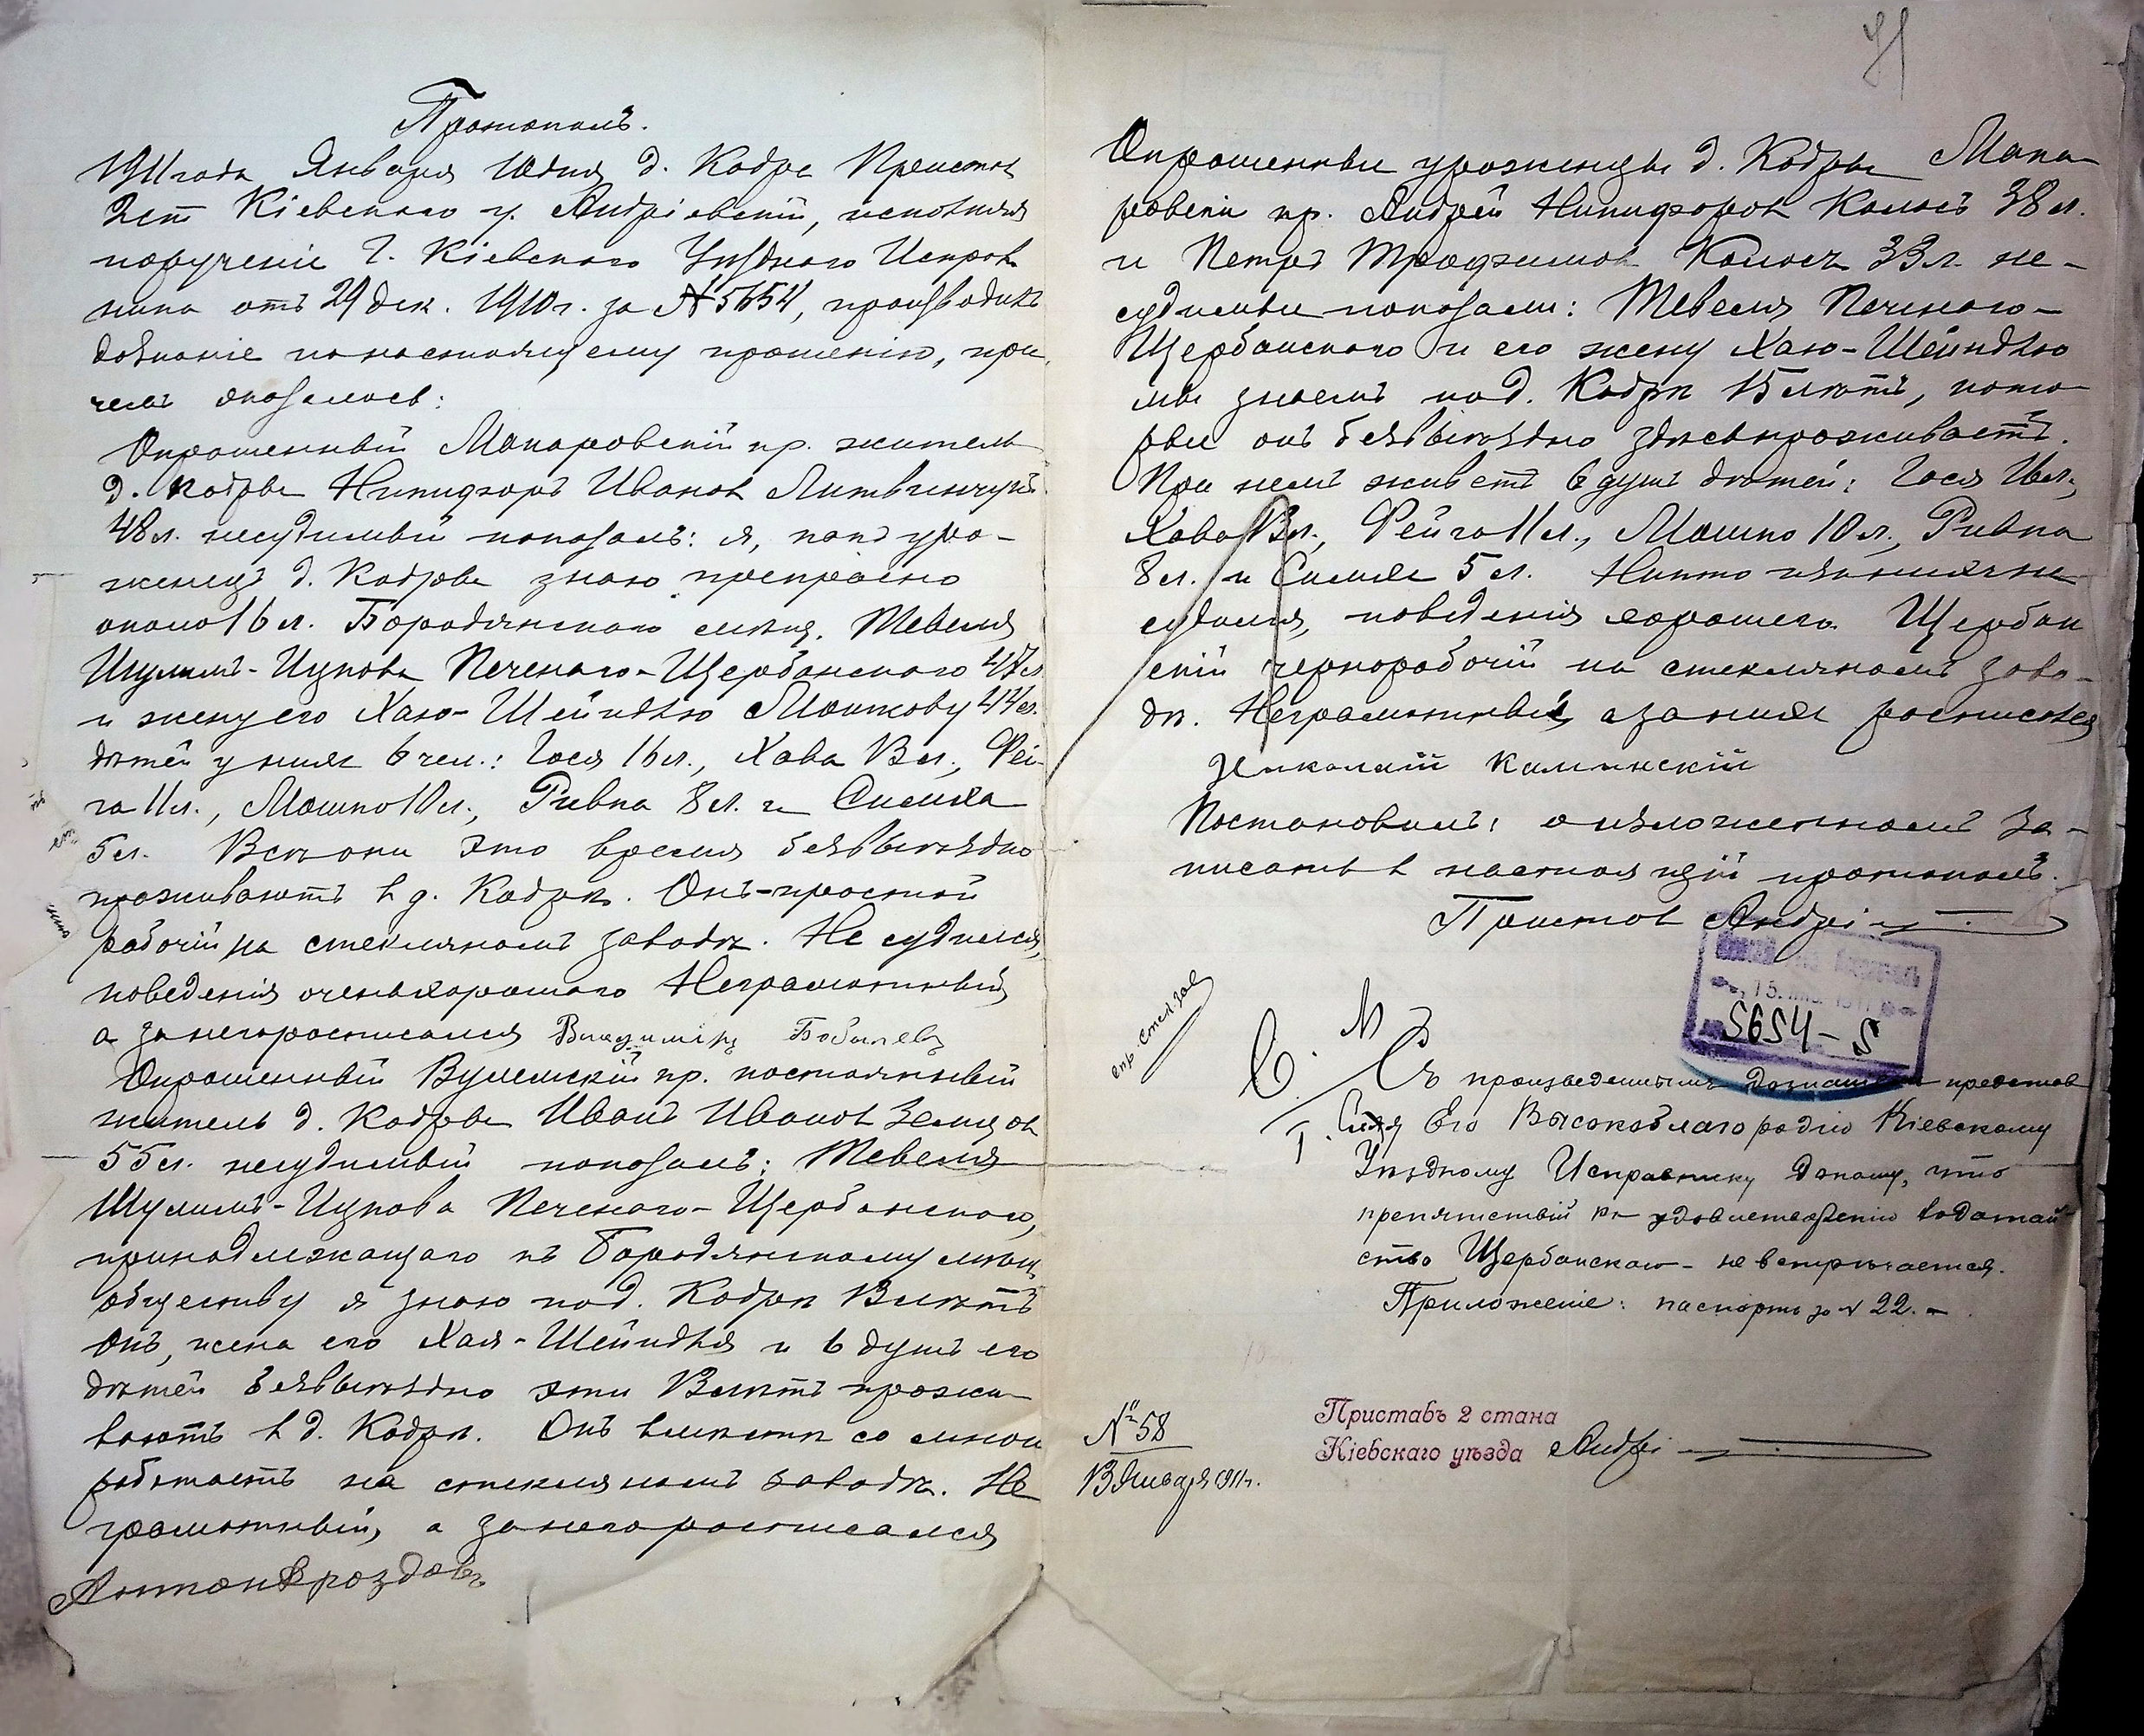 Протоколъ.
1911 года Января 10 дня д. Кодра Приставъ
2 ст. Кіевскаго у. Андріевскій, исполняя
порученіе Г. Кіевскаго Уѣзднаго Исправ
ника отъ 29 дек. 1910 г. за № 5654, производилъ
дознаніе по настоящему прошенію, при
чемъ оказалось:
Опрошенный Макаровскій кр. житель
д. Кодры Никифоръ Ивановъ Литвинчукъ
48 л. несудимый показалъ: я, какъ уро-
женецъ д. Кодры знаю прекрасно
около 16 л. Бородянскаго мѣщ. Тевеля
Шулимъ-Ицкова Печенаго-Щербанскаго 47 л.
и жену его Хаю-Шейндлю Мошкову 44 л.
дѣтей у нихъ 6 чел.: Гося 16 л., Хава 13 л., Фей
га 11 л., Мошко 10 л., Ривка 8 л. и Симха
5 л. Всѣ они это время безвыѣздно
проживаютъ в д. Кодрѣ. Онъ-простой
рабочій на стеклянномъ заводѣ. Не судился,
поведенія очень хорошаго Неграмотный,
а за него росписался Владиміръ Бобылевъ
Опрошенный кр. постоянный
житель д. Кодры Иванъ Ивановъ Земцовъ
55 л. несудимый показалъ: Тевеля
Шулимъ-Ицкова Печенаго-Щербанскаго,
принадлежащаго къ Бородянскому мѣщ.
обществу я знаю по д. Кодрѣ 13 лѣтъ
Онъ, жена его Хая-Шейндля и 6 душъ его
дѣтей безвыѣздно эти 13 лѣтъ прожи
ваютъ в д. Кодрѣ. Онъ вмѣстѣ со мною
работаетъ на стеклянномъ заводѣ. Не
грамотный, а за него росписался
Антон Дроздовъ
91
Опрошенные уроженцы д. Кодры Мака
ровскіи кр. Андрей Никифоровъ Колосъ 38 л.
и Петръ Трофимовъ Колосъ 33 л. не-
судимые показали: Тевеля Печенаго-
Щербанскаго и его жену Хаю-Шейндлю
мы знаемъ по д. Кодрѣ 15 лѣтъ, кото
рые онъ безвыѣздно здѣсь проживаетъ.
При немъ живетъ 6 душъ дѣтей: Гося 16 л.,
Хава 13 л., Фейга 11 л., Мошко 10 л., Ривка
8 л. и Симха 5 л. Никто изъ нихъ не
судился, поведенія хорошаго. Щербан
скій чернорабочій на стеклянномъ заво-
дѣ. Неграмотный, а за нихъ росписался
Николай Каминскій
Постановилъ: о изложенномъ за-
писать в настоящій протоколъ.
Приставъ Андрі
5654-5
С. М. З.
Т.
Съ произведеннымъ дознаніемъ представ
ляя Его Высокоблагородію Кіевскому
Уѣздному Исправнику доношу, что
препятствій къ удовлетворенію ходатай
ства Щербанскаго - не встрѣчается.
Приложеніе: паспортъ за № 22.
№ 58
13 Января 1911 г.
Приставъ 2 стана
Кіевскаго уѣзда Андрі